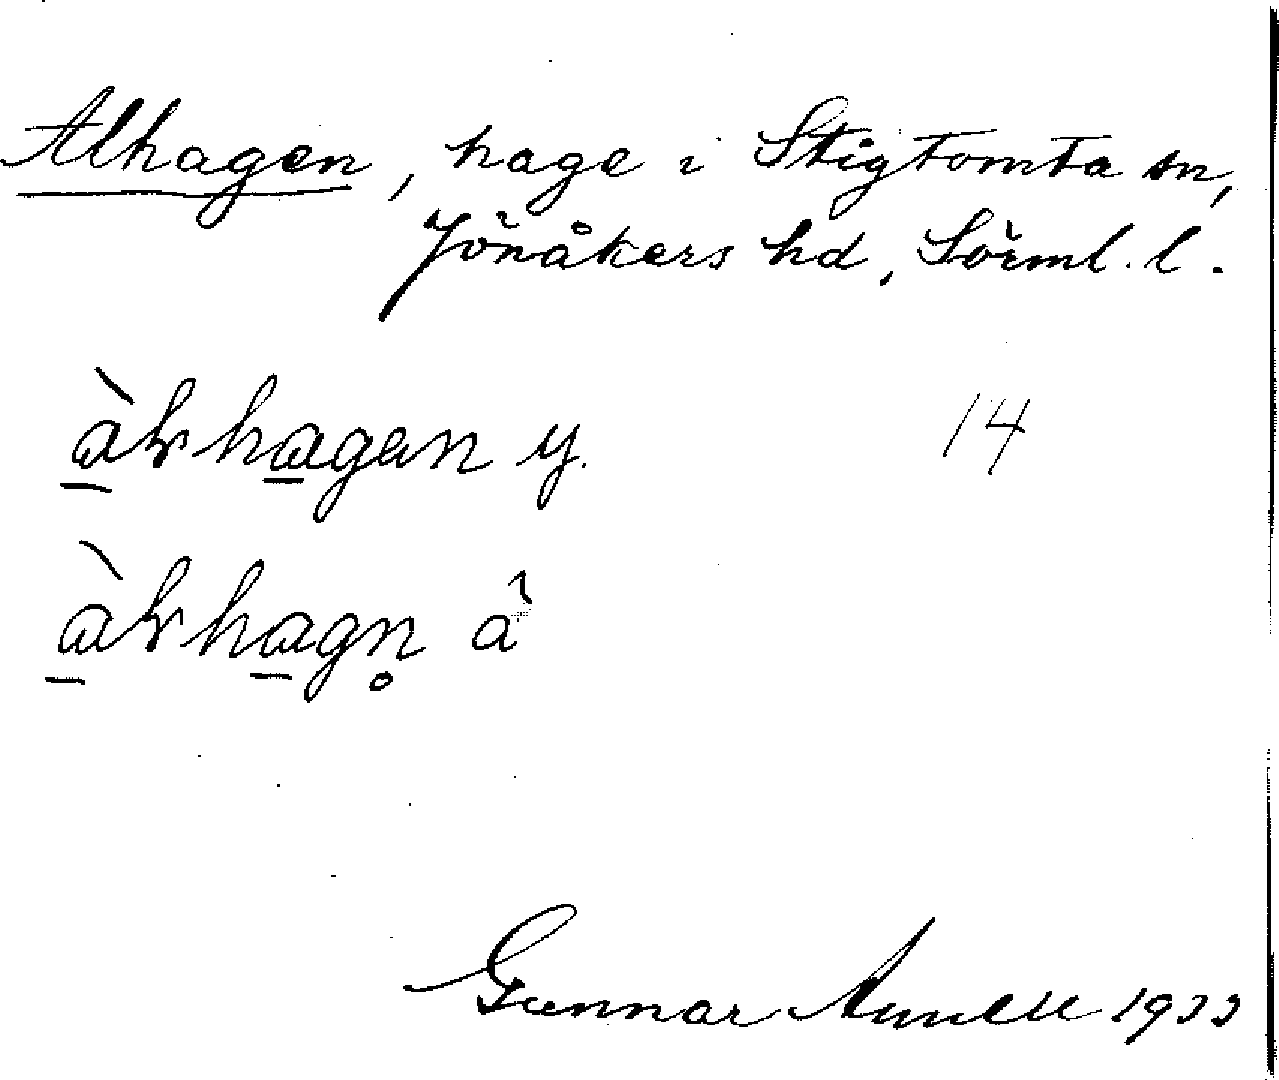 Alhagen, hage i Stigtomta sn,
Jönåkers hd, Sörml. l.
àlhagen y.
14
àlhagn̥ ä
Gunnar 1933